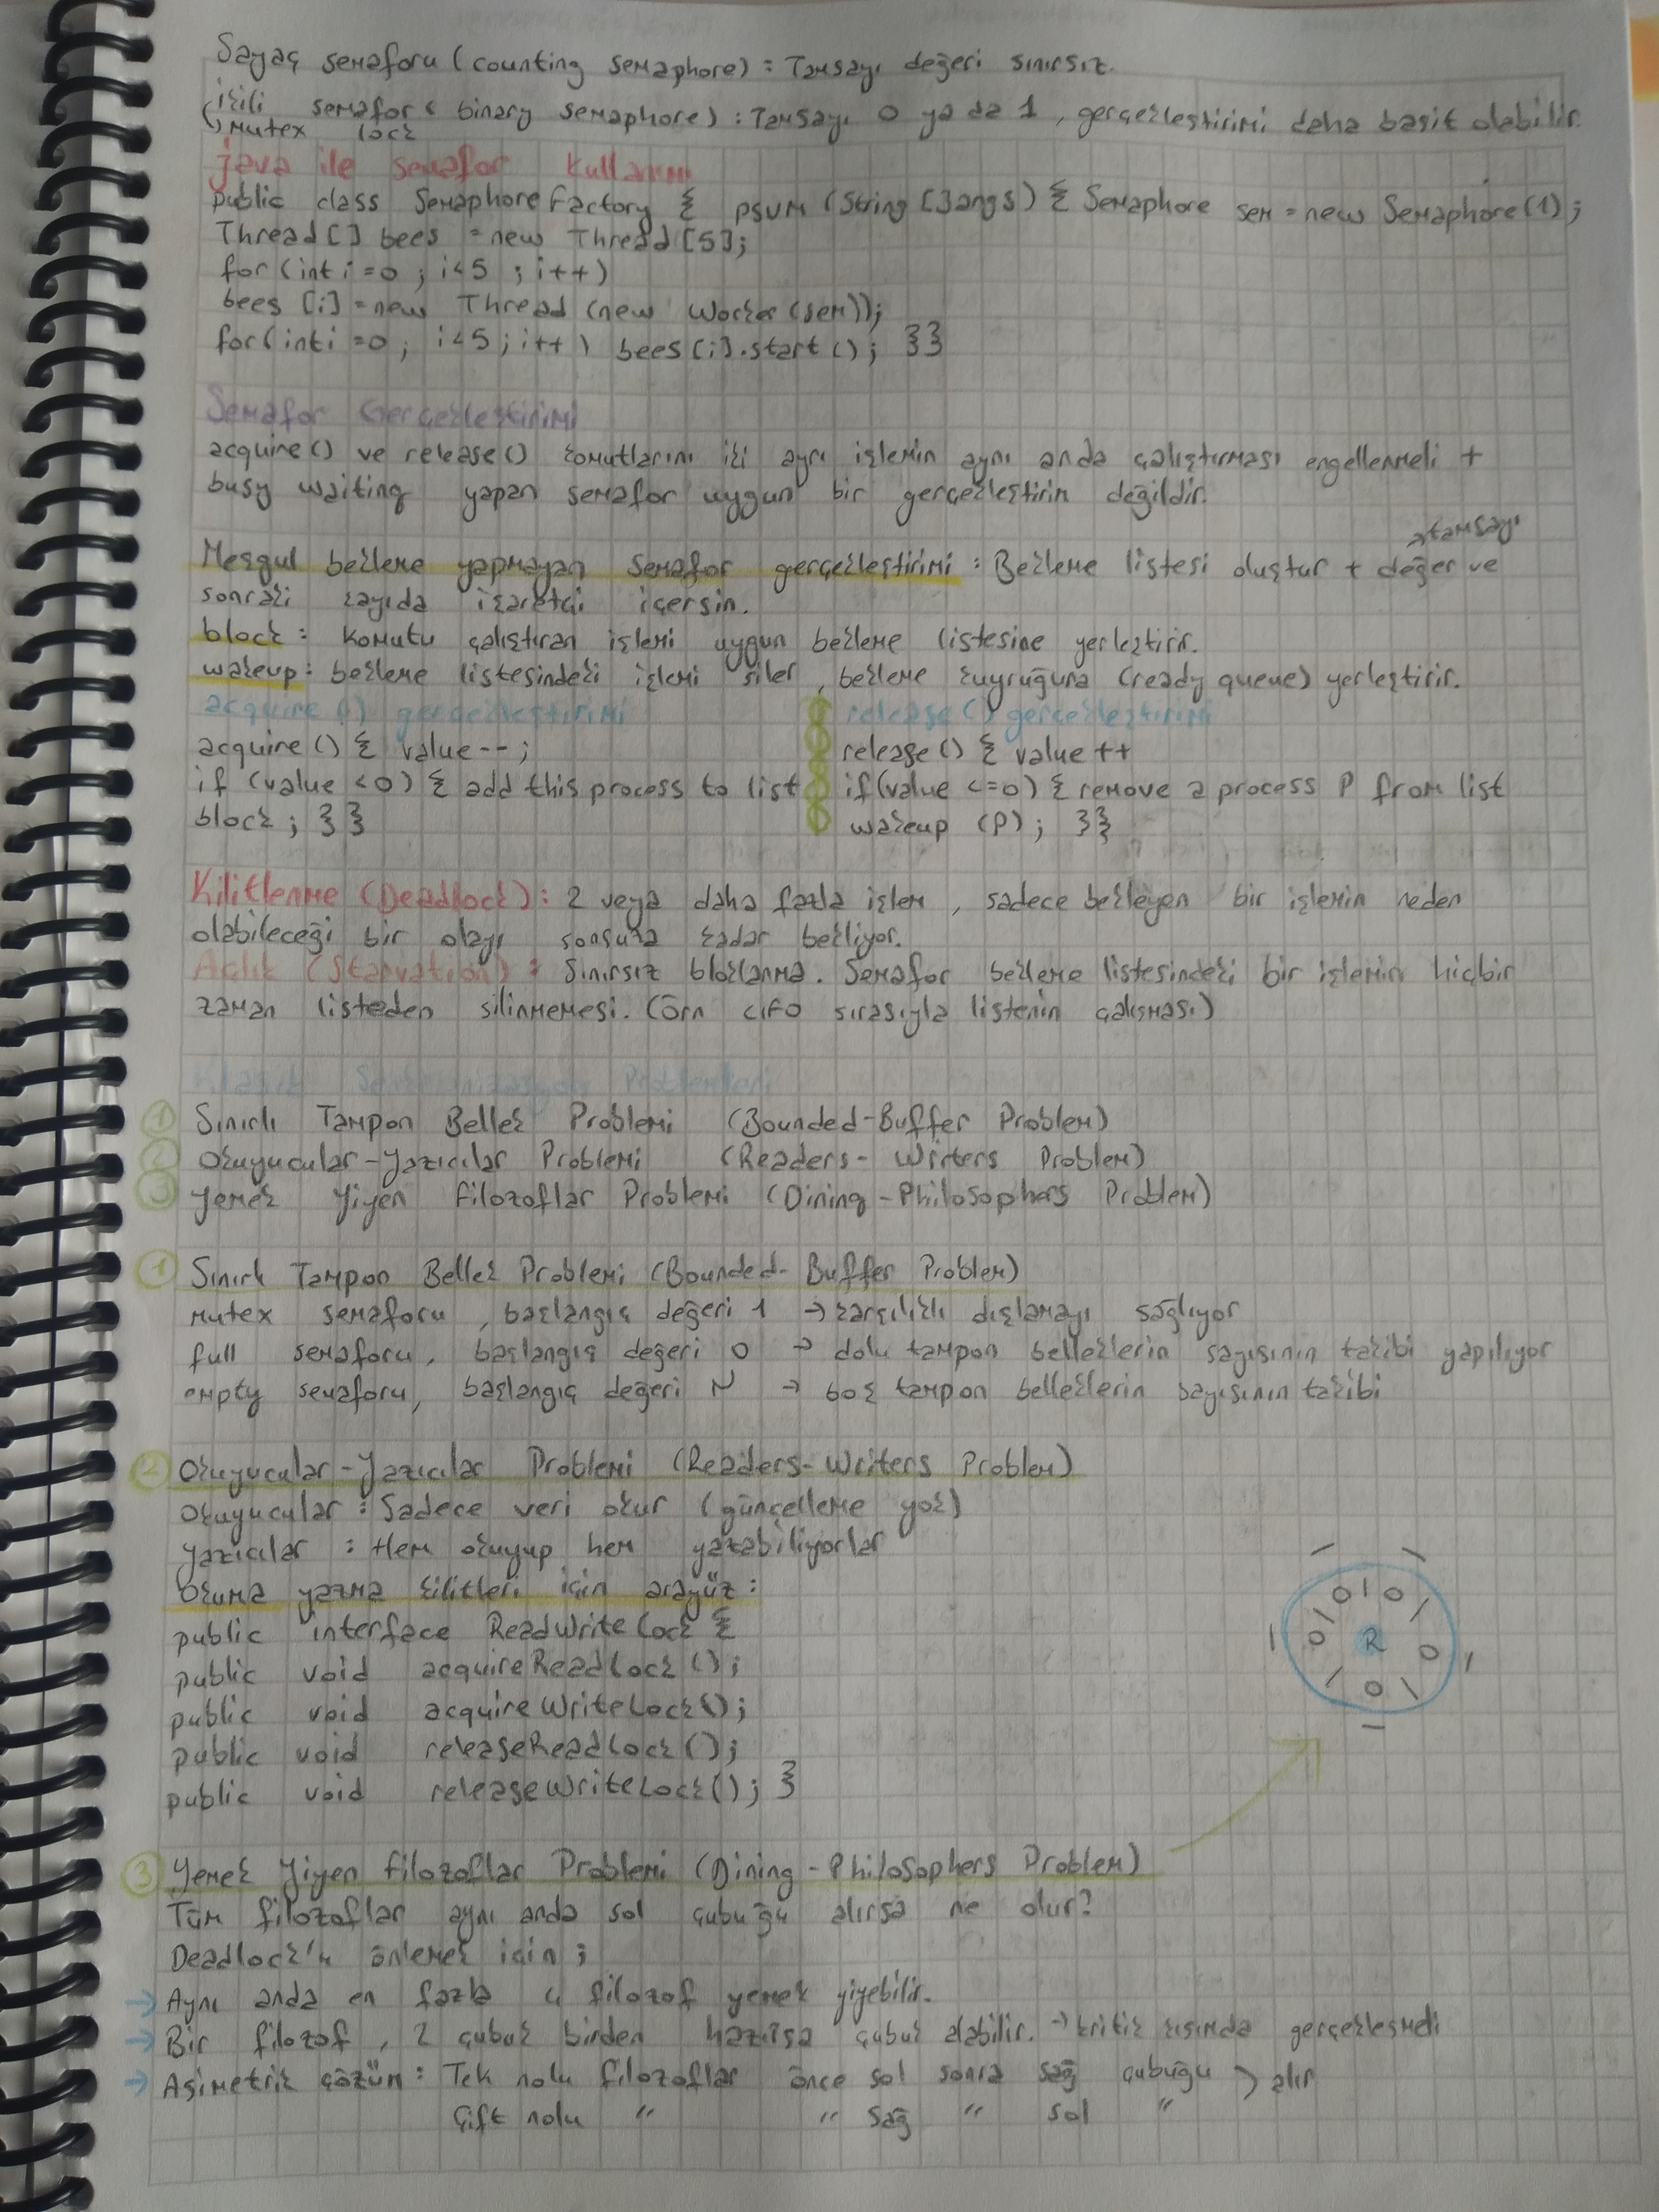 Sayaç semaforu (counting semaphore) : Tamsayı değeri sınırsız.
ikili semafor ( binary semaphore) : Tamsayı 0 ya da 1 , gerçekleştirimi daha basit olabilir.
↳ mutex lock
java ile semafor kullanımı
public class SemaphoreFactory { psvm (String []args) { Semaphore sem = new Semaphore(1);
Thread[] bees = new Thread[5];
for(int i=0 ; i<5 ; i++)
bees [i] = new Thread (new Worker (sem));
for(int i=0 ; i<5 ; i++ ) bees[i].start (); }}
Semafor Gerçekleştirimi
acquire() ve release() komutlarını iki ayrı işlemin aynı anda çalıştırması engellenmeli +
busy waiting yapan semafor uygun bir gerçekleştirim değildir.
→tamsayı
Meşgul bekleme yapmayan semafor gerçekleştirimi : Bekleme listesi oluştur + değer ve
sonraki kayıda işaretçi içersin.
block : komutu çalıştıran işlemi uygun bekleme listesine yerleştirir.
wakeup : bekleme listesindeki işlemi siler , bekleme kuyruğuna (ready queue) yerleştirir.
acquire () gerçekleştirimi
acquire () { value-- ;
if (value <0) { add this process to list
block ; } }
release () gerçekleştirimi
release () { value ++
if(value <=0) { remove a process P from list
wakeup (P) ; }}
Kilitlenme (Deadlock) : 2 veya daha fazla işlem , sadece bekleyen bir işlemin neden
olabileceği bir olayı sonsuza kadar bekliyor.
Açlık (Starvation) : Sınırsız bloklanma. Semafor bekleme listesindeki bir işlemin hiçbir
zaman listeden silinmemesi. (Örn LIFO sırasıyla listenin çalışması)
Klasik Senkronizasyon Problemleri
① Sınırlı Tampon Bellek Problemi (Bounded-Buffer Problem)
② Okuyucular-Yazıcılar Problemi (Readers- Writers Problem)
③ Yemek Yiyen Filozoflar Problemi (Dining-Philosophers Problem)
① Sınırlı Tampon Bellek Problemi (Bounded- Buffer Problem)
mutex semaforu , başlangıç değeri 1 → karşılıklı dışlamayı sağlıyor
full semaforu , başlangıç değeri 0 → dolu tampon belleklerin sayısının takibi yapılıyor
empty semaforu, başlangıç değeri N → boş tampon belleklerin sayısının takibi
② Okuyucular-Yazıcılar Problemi (Readers-Writers Problem)
Okuyucular : Sadece veri okur (güncelleme yok)
yazıcılar : Hem okuyup hem yazabiliyorlar
Okuma yazma kilitleri için arayüz :
public interface ReadWriteLock {
public void acquireReadLock ();
public void acquireWriteLock();
public void releaseReadLock ();
public void releaseWriteLock(); }
R
③ Yemek Yiyen Filozoflar Problemi (Dining-Philosophers Problem)
Tüm filozoflar aynı anda sol çubuğu alırsa ne olur?
Deadlock'u önlemek için ;
→ Aynı anda en fazla 4 filozof yemek yiyebilir.
→ Bir filozof , 2 çubuk birden hazırsa çubuk alabilir. → kritik kısımda gerçekleşmeli
→ Asimetrik çözüm : Tek nolu filozoflar önce sol sonra sağ çubuğu > alır
Çift nolu " " sağ " sol "